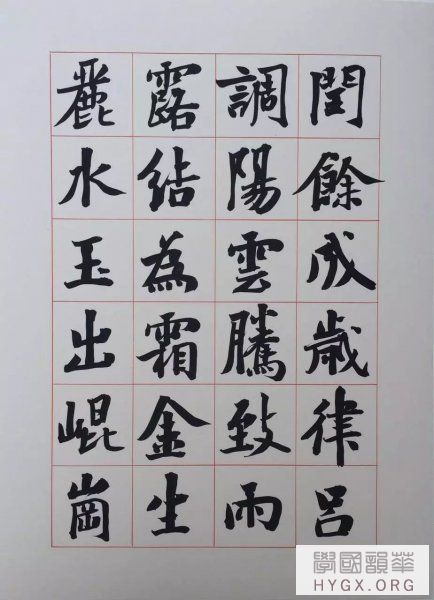 閏餘成歲律呂
調陽雲騰致雨
露結為霜金生
麗水玉出崐崗
華韻國學
HYGX.ORG